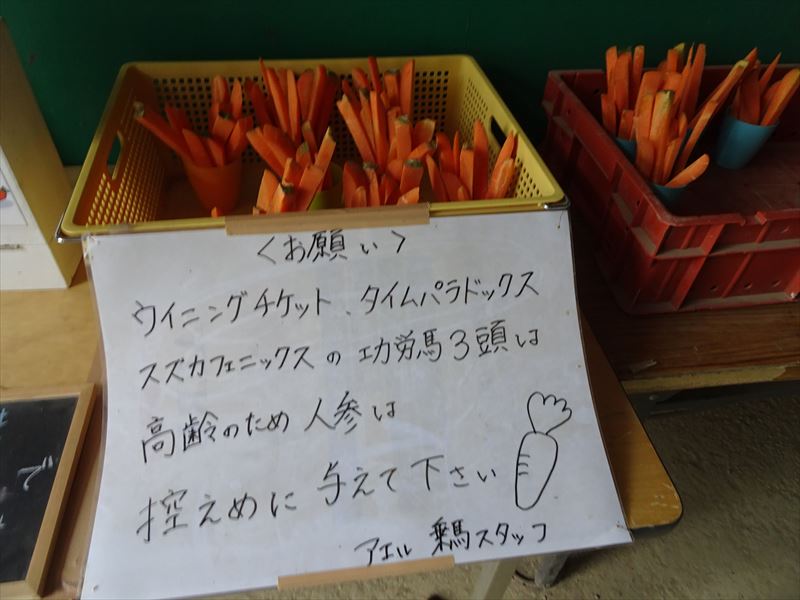 〈お願い〉
ウイニングチケット、タイムパラドックス
スズカフェニックスの功労馬3頭は
高齢のため人参は
控えめに与えて下さい
アエル 乗馬スタッフ